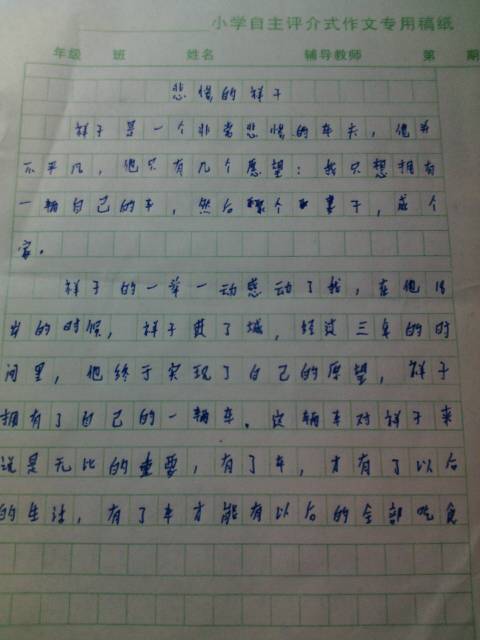 小学自主评介式作文专用稿纸
年级 班 姓名 辅导教师 第 期
悲惨的祥子
祥子是一个非常悲惨的车夫，他并
不平凡，他只有几个愿望：我只想拥有
一辆自己的车，然后取个妻子，成个
家。
祥子的一举一动感动了我，在他18
岁的时候，祥子进了城，经过三年的时
间里，他终于实现了自己的愿望，祥子
拥有了自己的一辆车。这辆车对祥子来
说是无比的重要，有了车，才有了以后
的生活，有了车才能有以后的全部吃食